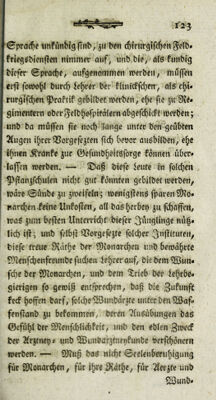 123
Sprache unkündig sind, zu den chirurgischen Feld-
kriegsdiensten nimmer auf, und die, als kundig
dieser Sprache, aufgenommen werden, müssen
erst sowohl durch Lehrer der klinischen, als chi-
rurgischen Praktik gebildet werden, ehe sie zu Re-
gimentern oder Feldhospitälern abgeschickt werden;
und da müssen sie noch lange unter den geübten
Augen ihrer Vorgesetzten sich bevor ausbilden, ehe
ihnen Kranke zur Gesundheitsorge können über-
lassen werden. — Daß diese leute in solchen
Pflanzschulen nicht gut könnten gebildet werden,
wäre Sünde zu zweifeln; wenigstens sparen Mo-
narchen keine Unkosten, all das herbey zu schaffen,
was zum besten Unterricht dieser Jünglinge nütz-
lich ist; und selbst Vorgesetzte solcher Instituten,
diese treue Räthe der Monarchen und bewährte
Menschenfreunde suchen Lehrer auf, die dem Wun-
sche der Monarchen, und dem Trieb der Lehrbe-
gierigen so gewiß entsprechen, daß die Zukunft
keck hoffen darf, solche Wundärzte unter den Waf-
fenstand zu bekommen, deren Ausübungen das
Gefühl der Menschlichkeit, und den edlen Zweck
der Arzney- und Wundarzneykunde verschönern
werden. — Muß das nicht Seelenberuhigung
für Monarchen, für ihre Räthe, für Aerzte und
Wund-